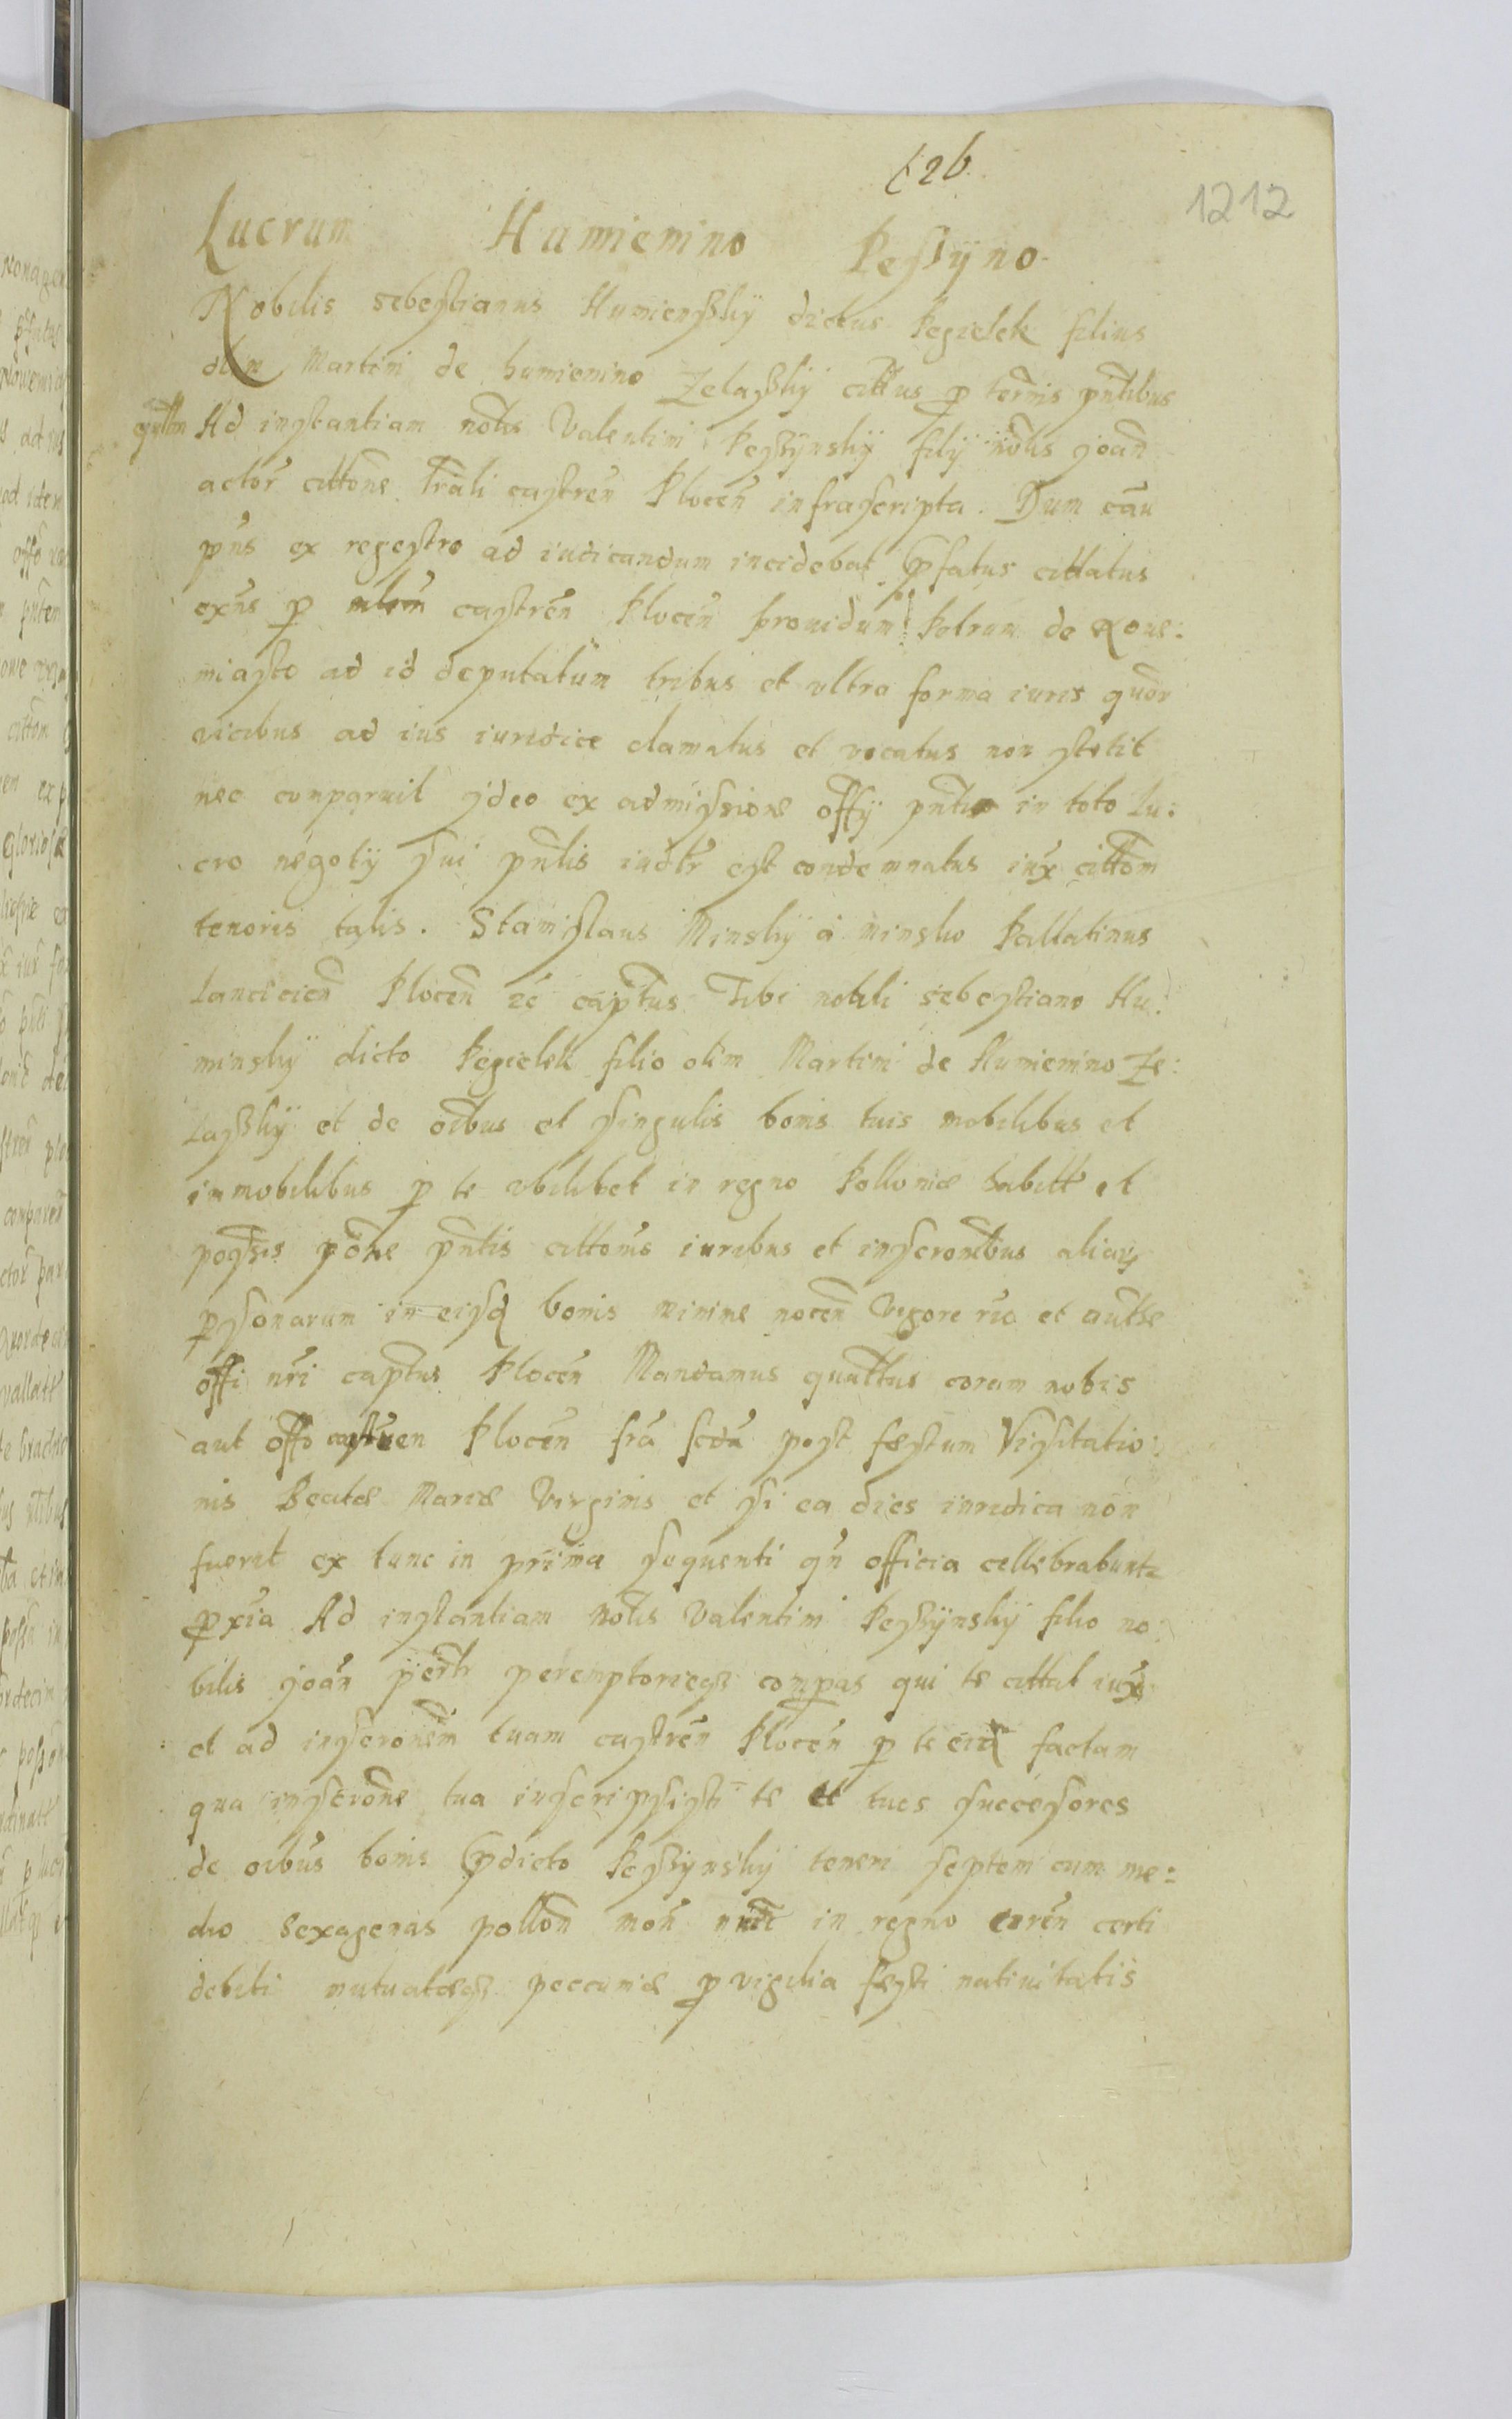 626.
1212
Lucrum Humienino Pessÿno
Nobilis sebestianus Humienskÿ dictus Pegielek filius
olim Martini de humienino Zelaskÿ cittus p termis pntibus
Ad instantiam nobs Valentini Pessÿnskÿ filÿ nobis Joan
actor cittone trali castren Plocen infrascripta. Dum cau
pns ex regestro ad iudicandum incidebat pfatus cittatus
exns p castren Plocen prouidum Petrum de Rowe:
miasto ad id deputatum tribus et ultra forma iuris quar
vicibus ad ius iuridice clamatus et vocatus non stetit
nec comparuit Ideo ex admissione offÿ pntis in toto lu:
cro negotÿ sui pntis iudtr est condemnatus iux cittom
tenoris talis. Stanislaus Minskÿ á minsko Pallatinus
Lancicien Plocen zc captus Tibi nobili sebestiano Hu:
minskÿ dicto Pegielek filio olim Martini de Humienino Ze:
laskÿ et de oibus et singulis bonis tuis mobilibus et
inmobilibus p te ubilibet in regno Polloniæ habitt et
possis pone pntis cittonis iuribus et inscronibus aliar
psonarum in eisq bonis minime nocen Vigore rio et authe
offi nri captus Plocen Mandamus quattus coram nobis
aut offo castren Plocen fra scda post fæstum Visitatio:
nis Beatæ Mariæ Virginis et si ea dies iuridica non
fuerit ex tunc in priima sequenti qn officia cellebrabunt
pxia Ad instantiam nobis Valentini Pessÿnskÿ filio no:
bilis Joan peremptorieqz compas qui te cittat iux
et ad inscronem tuam castren Plocen p te eidq factam
qua inscrone tua inscripsisti te et tuos successores
de oibus bonis pdicto Pessÿnskÿ teneri septem cum me:
dio sexagenas pollon mon in regno curen certi
debiti mutuatæqz peccuniæ p vigilia fæsti natiuitatis